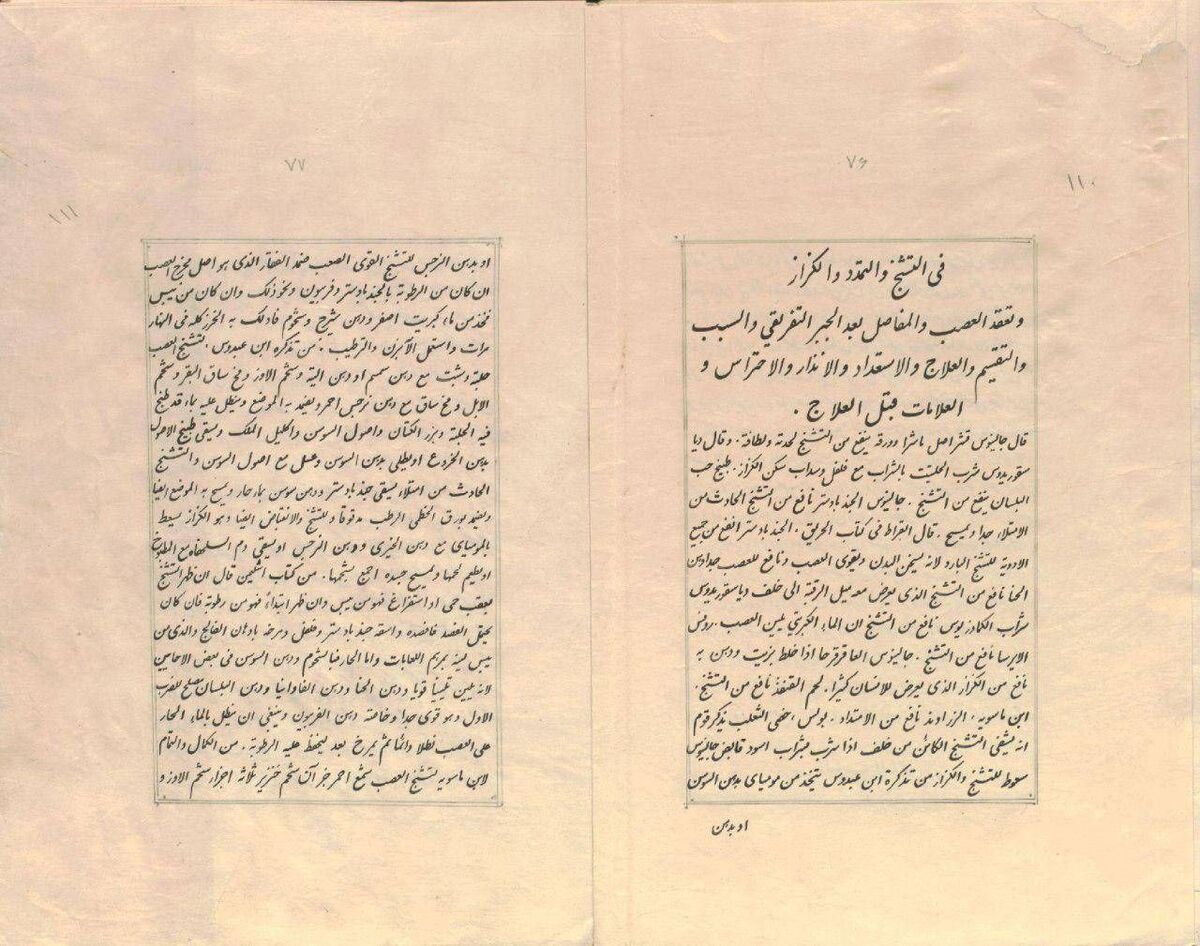 ۷۶
۱۱۰
فى التشنج والتمدد والكزاز
وتعقد العصب والمفاصل بعد الجبر التفريقي والسبب
والتقسيم والعلاج والاستعداد والانذار والاحتراس و
العلامات قبل العلاج .
قال جالينوس قشر اصل باشرا وورقه ينفع من التشنج لحدته ولطافة . وقال ديا
سقوريدوس شرب الحلتيت بالشراب مع فلفل وسداب سكن الكزاز . طبيخ حب
البلسان ينفع من التشنج . جالينوس الجندبادستر نافع من التشنج الحادث من
الامتلاء جدا وتمسيح . قال القراط فى كتاب الحريق . الجندبادستر انفع من جميع
الادوية للتشنج البارد لانه يسخن البدن ويقوى العصب ونافع للعصب جدا دهن
الحنا نافع من التشنج الذى يعرض معه ميل الرقبة الى خلف دياسقوريدوس
شراب الكمادريوس نافع من التشنج ان الماء الكبريتي يلين العصب روفس
الايرسا نافع من التشنج . جالينوس العاقرقرحا اذا خلط بزيت ودهن به
نافع من الكزاز الذى يعرض للانسان كثيرا . لحم القنفذ نافع من التشنج .
ابن ماسويه . الزراوند نافع من الامتداد . بولس ، خصى الثعلب يذكر قوم
انه يشفى التشنج الكائن من خلف اذا شرب بشراب اسود قابض جالينوس
سعوط للتشنج والكزاز من تذكرة ابن عبدوس يتخذ من موميائ بدهن السوسن
او بدهن
۷۷
۱۱۱
او بدهن النرجس للتشنج القوى الصعب ضمد الفقار الذى هو اصل مخرج العصب
ان كان من الرطوبة بالجندبادستر وفربيون ونحو ذلك وان كان من يبس
فخذ من ماء كبريت اصفر ودهن شيرج وشحوم فادلك به الخرز كله فى النهار
مرات واستعمل الآبزن والترطيب . من تذكره ابن عبدوس . لتشنج العصب
حلبة وشبت مع دهن سمسم او دهن الية وشحم الاوز ومخ ساق البقر وشحم
الابل ومخ ساق مع دهن نرجس احمر ويضمد به الموضع وينطل عليه بماء قد طبخ
فيه الحلبة وبزر الكتان واصول السوسن واكليل الملك ويسقى طبيخ الاصول
بدهن الخروع او يطلى بدهن السوسن وعسل مع اصول السوسن والتشنج
الحادث من امتلاء يسقى جندبادستر ودهن سوسن بماء حار ويمسح به الموضع ايضا
ويضمد بورق الخطمى الرطب مدقوقا وللتشنج والانقباض ايضا وهو الكزاز يسعط
بالموميائ مع دهن الخيرى ودهن النرجس او يسقى دم السلحفاه مع المطبوخ
او يطعم لحمها ويمسح جسده اجمع بشحمها . من كتاب اشليمن قال ان ظهر التشنج
بعقب حمى او استفراغ فهو من يبس وان ظهر ابتداء فهو من رطوبة فان كان
يحتمل الفصد فافصده واسقه جندبادستر وفلفل ومرخه بادهان الفالج والذى من
يبس لينه بمريم اللعابات واما الحار فبالشحوم ودهن السوسن فى بعض الاحايين
لانه يلين تليينا قويا ودهن الحنا ودهن الفاوانيا ودهن البلسان يصلح للضرب
الاول وهو قوى جدا وخاصة دهن الفربيون وينبغى ان ينطل بالماء الحار
على العصب نطلا دائما ثم يمرخ بعد ليحفظ عليه الرطوبة . من الكمال والتمام
لابن ماسويه لتشنج العصب شمع احمر جزآن شحم خنزير ثلاثة اجزاء شحم الاوز و